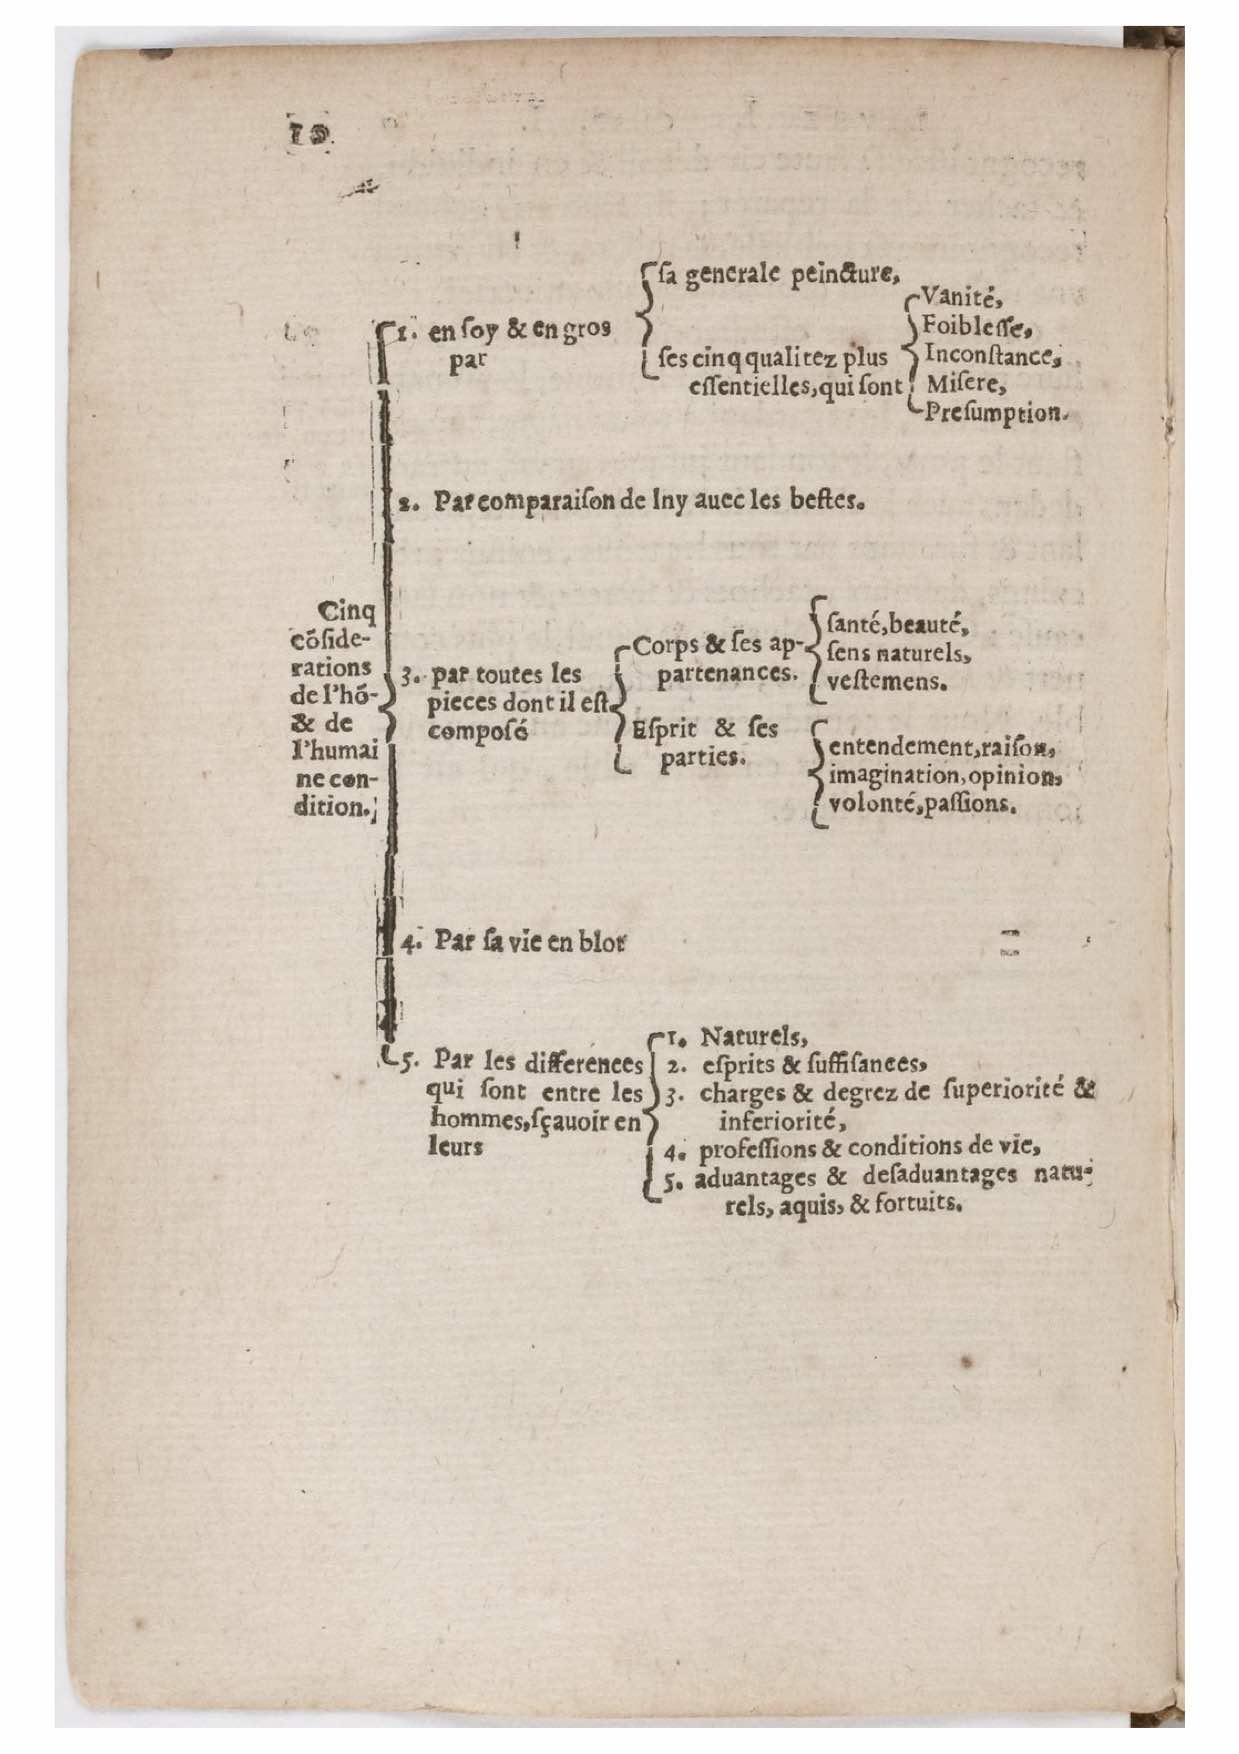 10
Cinq
cõside-
rations
de l'hõ-
& de
l'humai
ne con-
dition.
1. en ſoy & en gros
par
ſa generale peincture,
ſes cinq qualitez plus
eſſentielles, qui ſont
Vanité,
Foibleſſe,
Inconſtance,
Miſere,
Preſumption.
2. Par comparaiſon de lny auec les beſtes.
3. par toutes les
pieces dont il eſt
compoſé
Corps & ſes ap-
partenances.
ſanté, beauté,
ſens naturels,
veſtemens.
Eſprit & ſes
parties.
entendement, raiſon,
imagination, opinion,
volonté, paſſions.
4. Par ſa vie en blot
5. Par les differences
qui ſont entre les
hommes, ſçauoir en
leurs
1. Naturels,
2. eſprits & ſuffiſances,
3. charges & degrez de ſuperiorité &
inferiorité,
4. profeſſions & conditions de vie,
5. aduantages & deſaduantages natu-
rels, aquis, & fortuits.